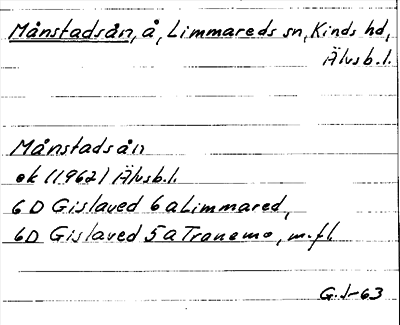 Månstadsån, å, Limmareds sn, Kinds hd,
Älvsb. l.
Månstadsån
ek (1962) Älvsb. l.
6D Gislaved 6a Limmared,
6D Gislaved 5a Tranemo, m.fl.
G.J-63